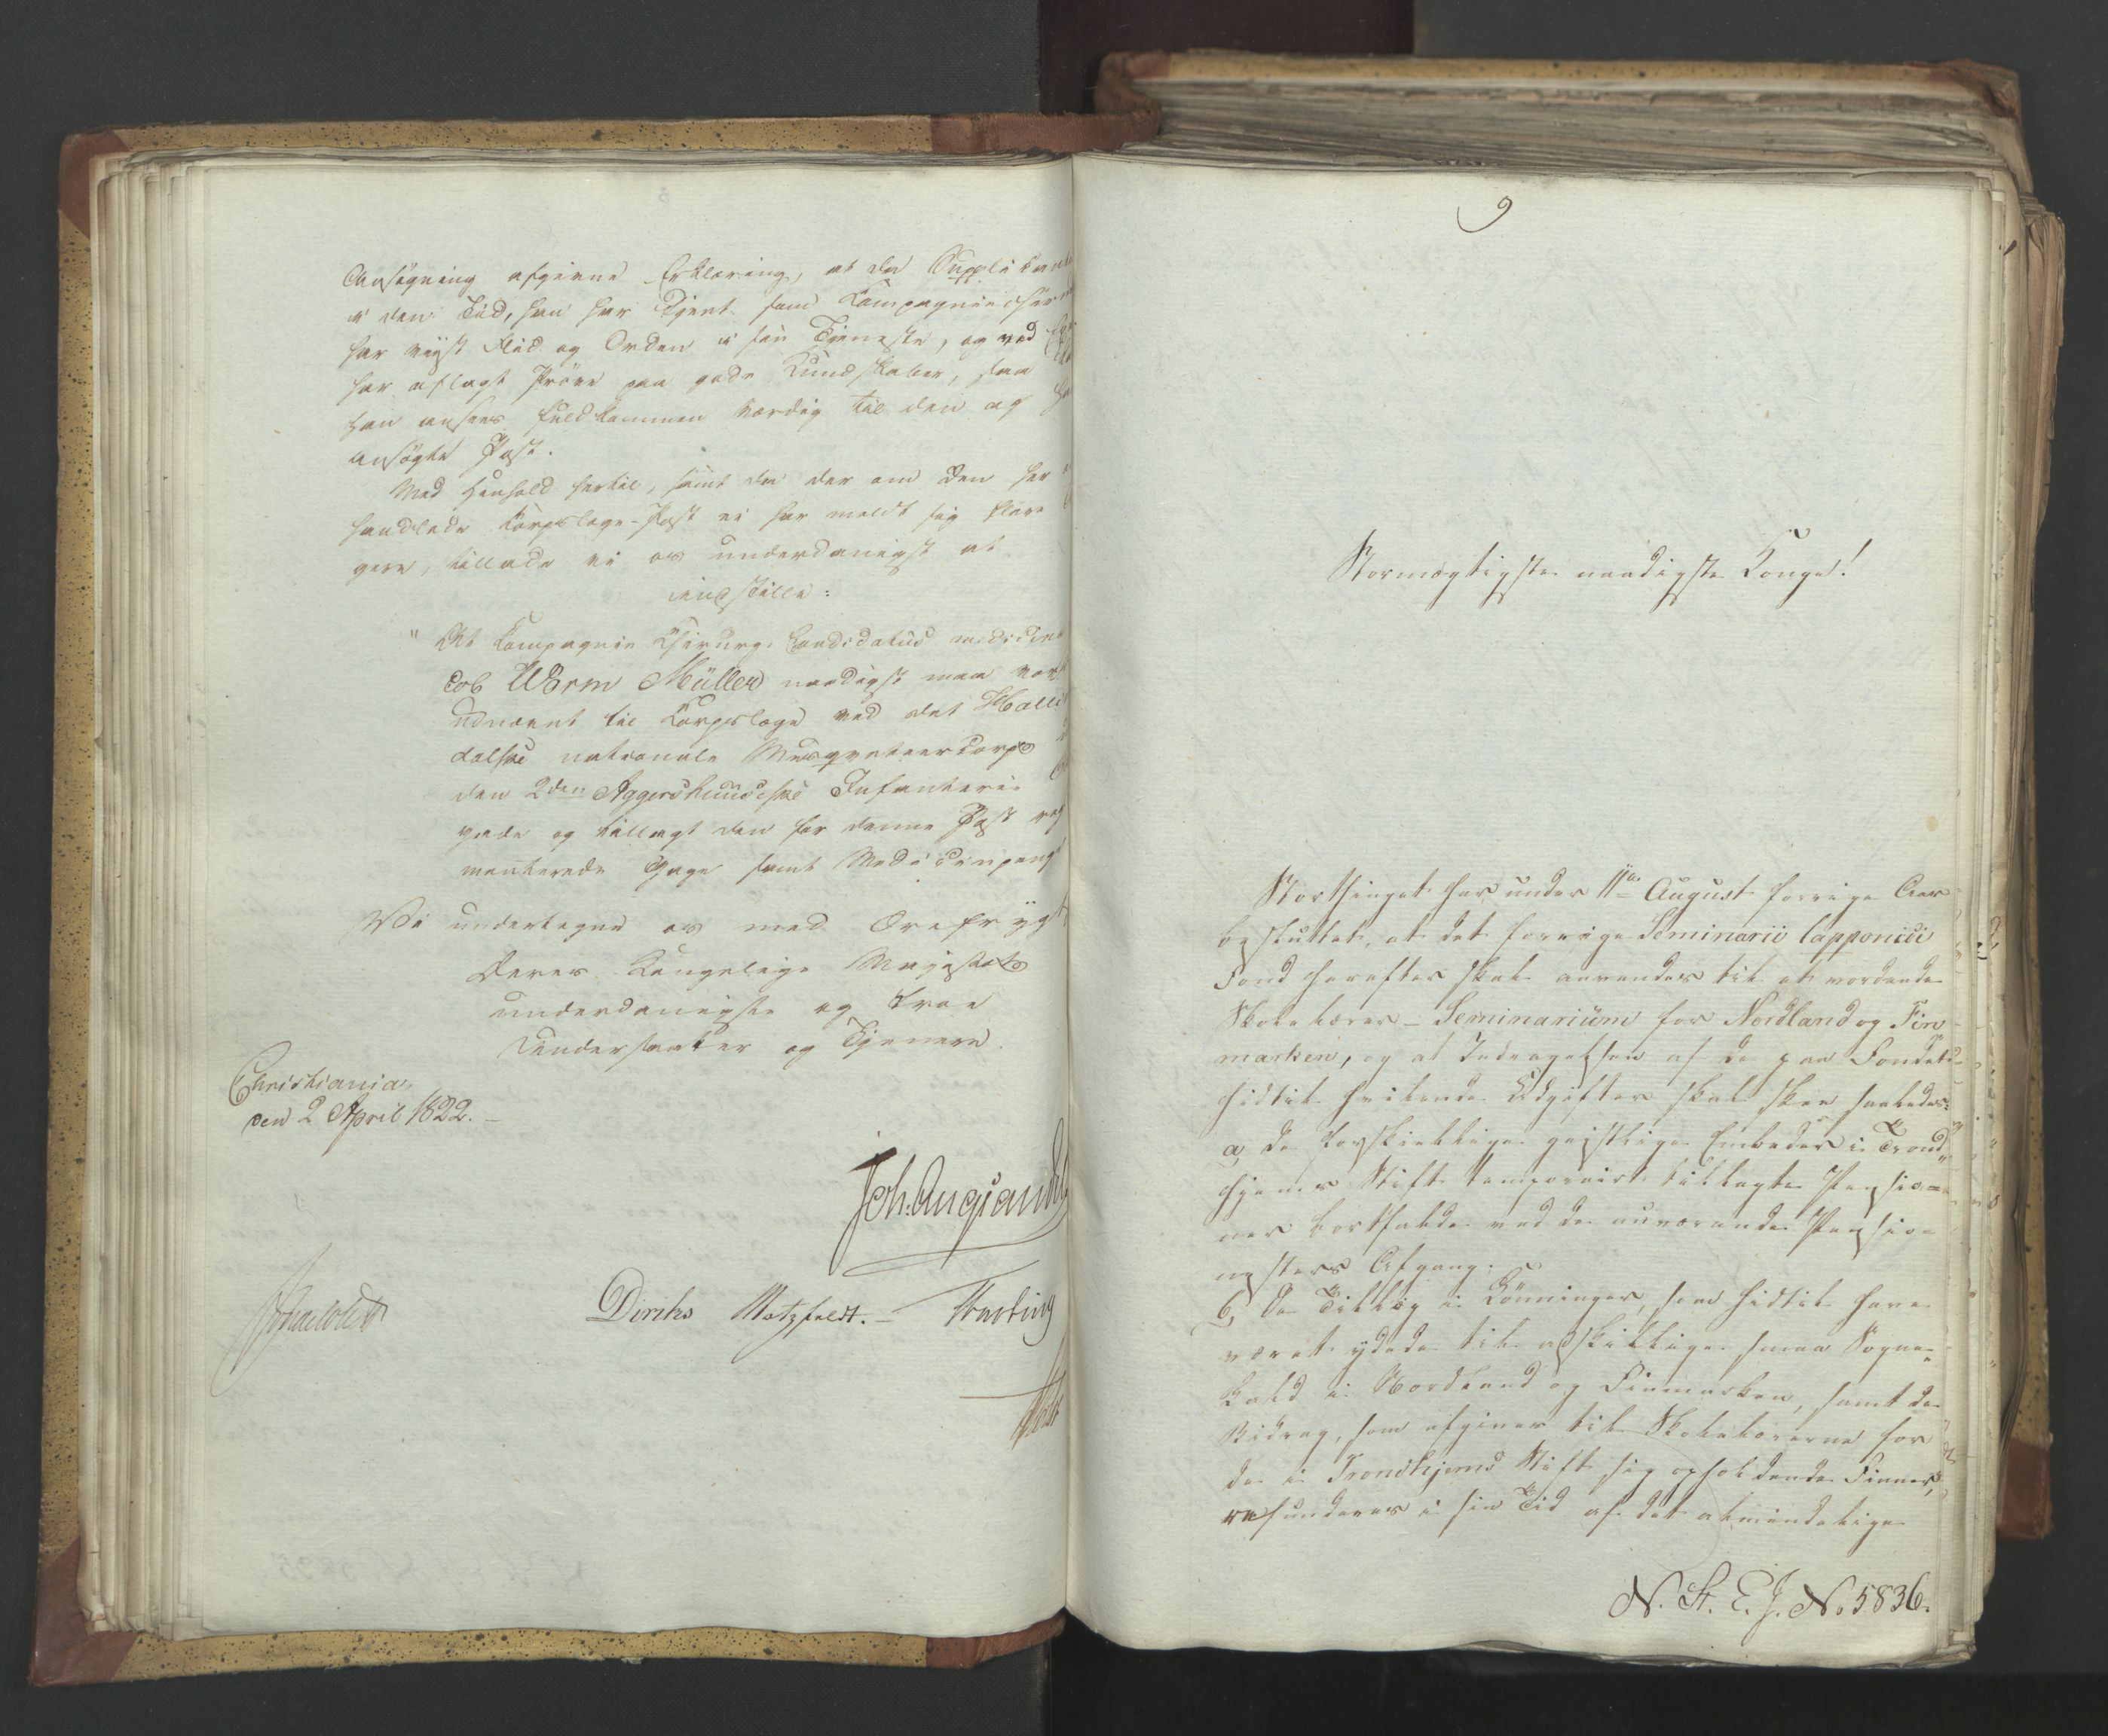 Ansøgning afgivne Erklæring, at da Supplikanten
i den Tid, han har tjent som Kompagniechir
har viist Flid og Orden i sin Tjeneste, og ved
har aflagt Prøve paa gode Kundskaber, saa
han ansees fuldkommen værdig til den af
ansøgte Post.
Med Henhold hertil, samt da der om den her
handlede Korpslæge-Post ei har meldt sig flere
gere, tillade vi os underdanigst at
indstille:
" At Kompagnie Chirurg, Candidatus medicinæ
cob Worm Müller naadigst maa vorde
udnævnt til Korpslæge ved det Halling
dalske nationale Musqueteercorps
den 2den Aggershuusiske Infanterie
gade og tillagt den for denne Post reg
menterede Gage samt Medicinpenge
Vi undertegne os med Ærefrygt
Deres Kongelige Majestæts
underdanigste og troe
Undersaatter og Tjenere.
Christiania,
den 2 April 1822. –
Diriks Motzfeldt. –
9
Stormægtigste naadigste Konge!
Storthinget har under 11te August forrige Aar
besluttet, at det forrige Seminarii lapponici
Fond herefter skal anvendes til et vordende
Skolelærer – Seminarium for Nordland og Fin
marken, og at Inddragelsen af de paa Fondet
hidtil hvilende Udgifter skal skee saaledes:
a, de forskiellige geistlige Embeder i Trond
hjems Stift temporairt tillagte Pensio=
ner bortfalde ved de nuværende Pensio
nisters Afgang.
b, De Tillæg i Lønninger, som hidtil have
været ydede til adskillige smaa Sogne=
kald i Nordland og Finmarken, samt de
Bidrag, som afgives til Skolelærerne for
de i Trondhjems Stift sig opholdende Finner,
refunderes i sin Tid af det almindelige
N. St. E. J. No 5836.